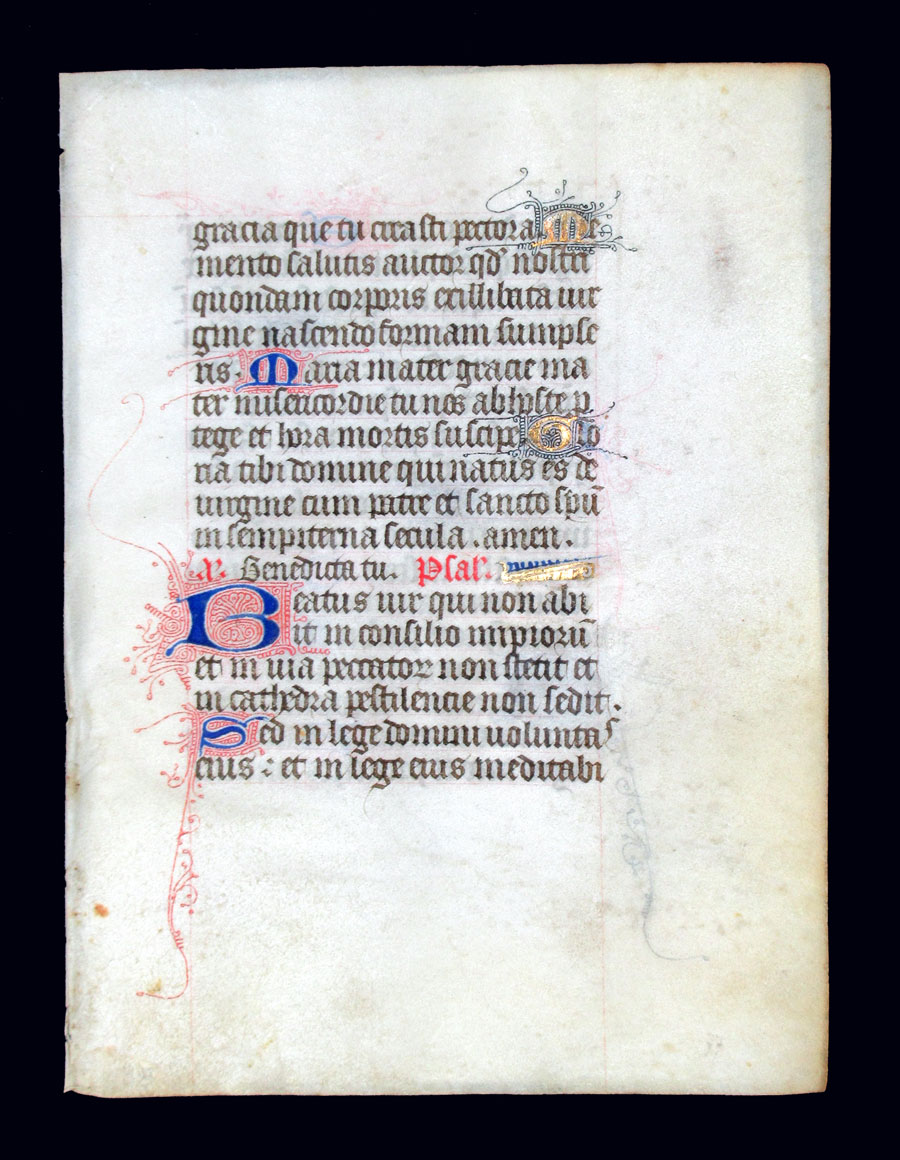 gracia que tu creasti pectora. Me
mento salutis auctor qd' nostri
quondam corporis exillibata uir
gine nascendo formam sumpse
ris. Maria mater gracie ma
ter misericordie tu nos ab hoste p
tege et hora mortis suscipe Glo
ria tibi domine qui natus es de
uirgine cum patre et sancto spū
in sempiterna secula. amen.
Benedicta tu. Psal'.
Beatus uir qui non abi
it in consilio impiorū
et in uia peccatoꝝ non stetit et
in cathedra pestilencie non sedit.
Sed in lege domini uoluntas
eius : et in lege eius meditabi